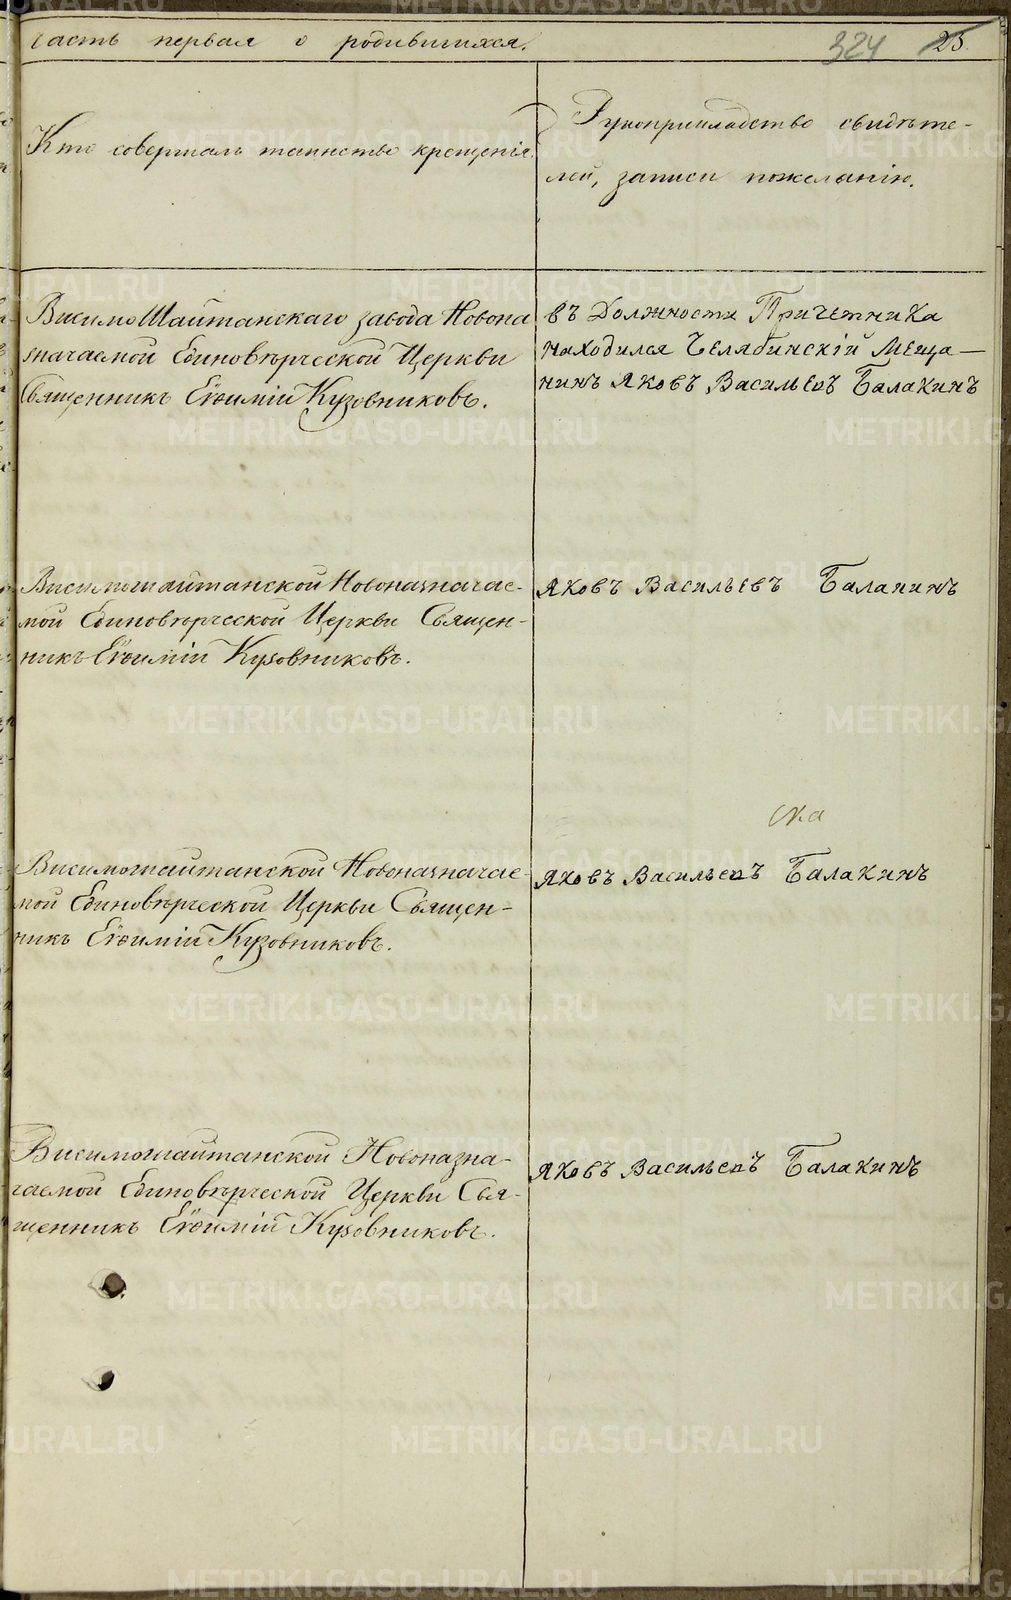 Часть первая о родившихся.
324 23.
Кто совершалъ таинство крещенія.
Рукоприкладство свидѣте-
лей, записи пожеланію.
Висимо Шайтанскаго завода Новона
значаемой Единовѣрческой Церкви
Священникъ Евѳимій Кузовниковъ.
въ Должности Причетника
находился Челябинскій Меща-
нинъ Яковъ Васильевъ Балакинъ
Висимошайтанской Новоназначае-
мой Единовѣрческой Церкви Священ-
никъ Евѳимій Кузовниковъ.
Яковъ Васильевъ Балакинъ
Висимошайтанской Новоназначае-
мой Единовѣрческой Церкви Священ-
никъ Евѳимій Кузовниковъ.
Яковъ Васильевъ Балакинъ
Висимошайтанской Новоназна-
чаемой Единовѣрческой Церкви Свя-
щенникъ Евѳимій Кузовниковъ.
Яковъ Васильевъ Балакинъ
METRIKI.GASO-URAL.RU